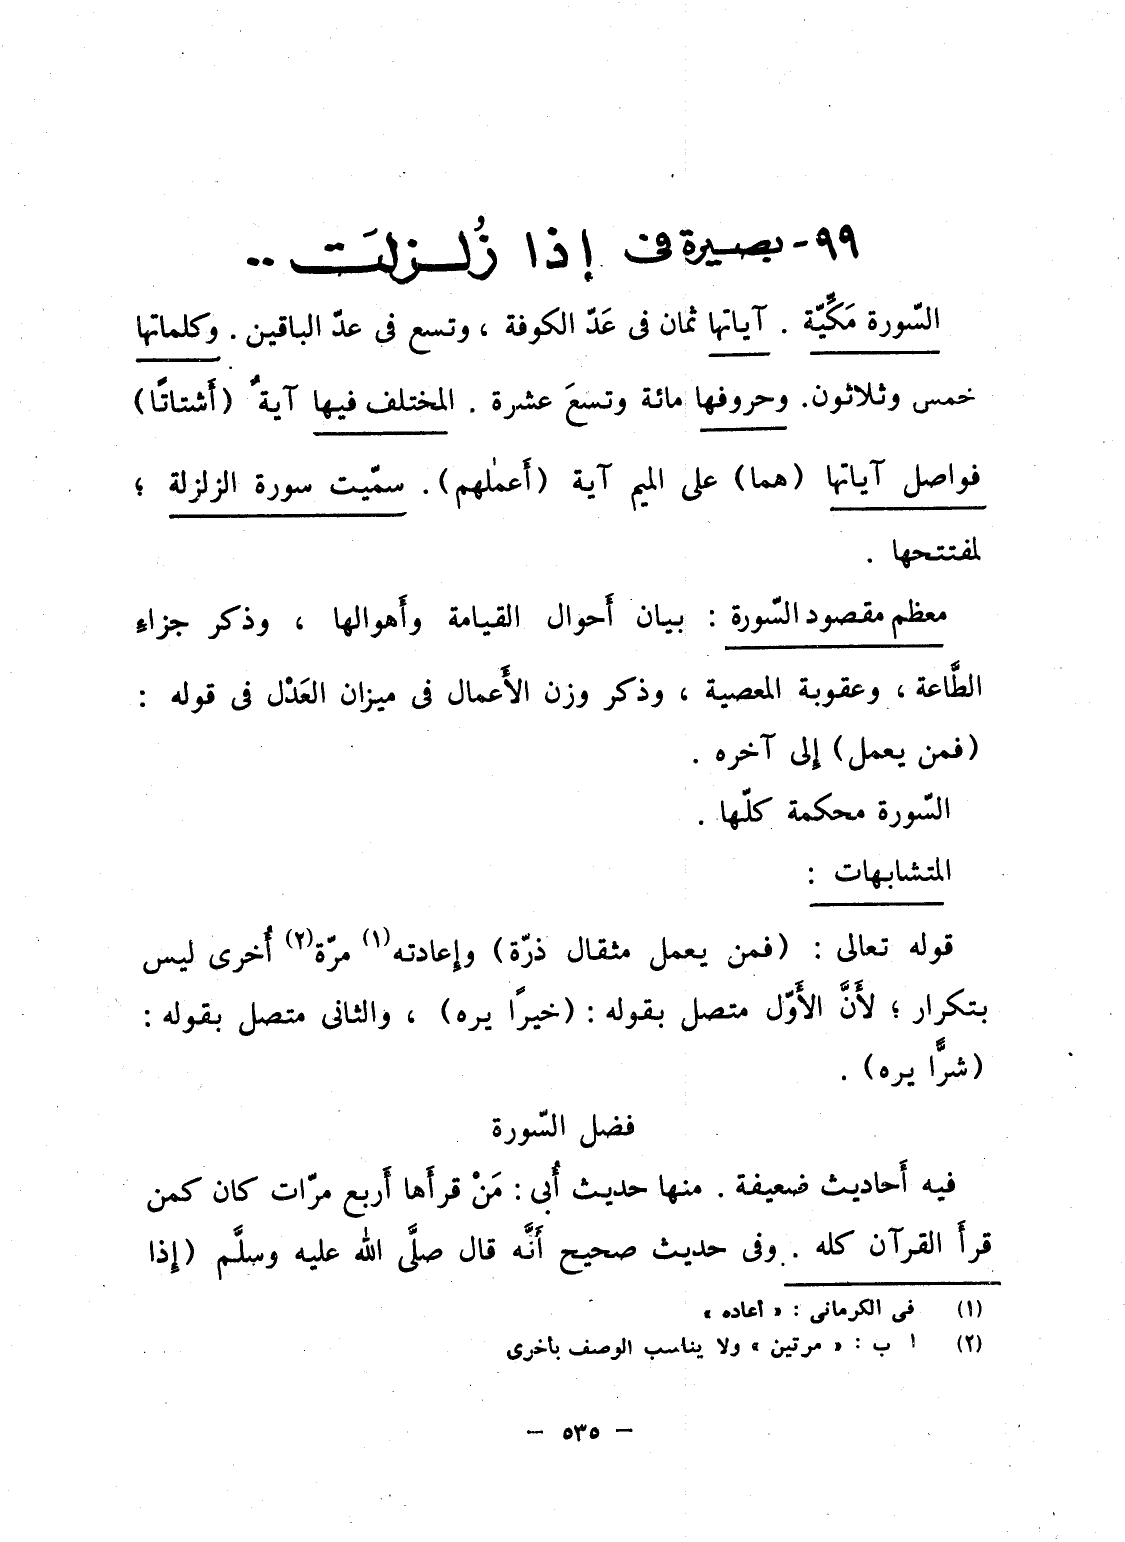 ٩٩- بصيرة فى إذا زُلـزلـتَ ..
السّورة مَكِّيّة . آياتها ثمان فى عَدّ الكوفة ، وتسع فى عدّ الباقين . وكلماتها
خمس وثلاثون. وحروفها مائة وتسعَ عشرة . المختلف فيها آيةٌ (أَشتاتًا)
فواصل آياتها (هما) على الميم آية (أَعمٰلهم). سمّيت سورة الزلزلة ؛
لمفتتحها .
معظم مقصود السّورة : بيان أَحوال القيامة وأَهوالها ، وذكر جزاءِ
الطَّاعة ، وعقوبة المعصية ، وذكر وزن الأَعمال فى ميزان العَدْل فى قوله :
(فمن يعمل) إِلى آخره .
السّورة محكمة كلّها .
المتشابهات :
قوله تعالى : (فمن يعمل مثقال ذرّة) وإِعادته(١) مرّة(٢) أُخرى ليس
بتكرار ؛ لأَنَّ الأَوّل متصل بقوله : (خيرًا يره) ، والثانى متصل بقوله :
(شرًّا يره) .
فضل السّورة
فيه أَحاديث ضعيفة . منها حديث أُبى : مَنْ قرأَها أَربع مرّات كان كمن
قرأَ القرآن كله . وفى حديث صحيح أَنَّه قال صلَّى الله عليه وسلَّم (إِذا
(١) فى الكرمانى : « أعاده »
(٢) ا ب : « مرتين » ولا يناسب الوصف بأخرى
– ٥٣٥ –